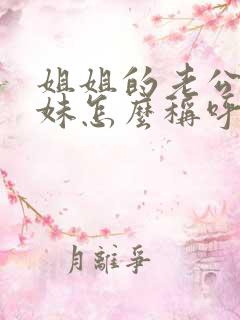 姐姐的老公
妹怎麼稱呼
月離爭